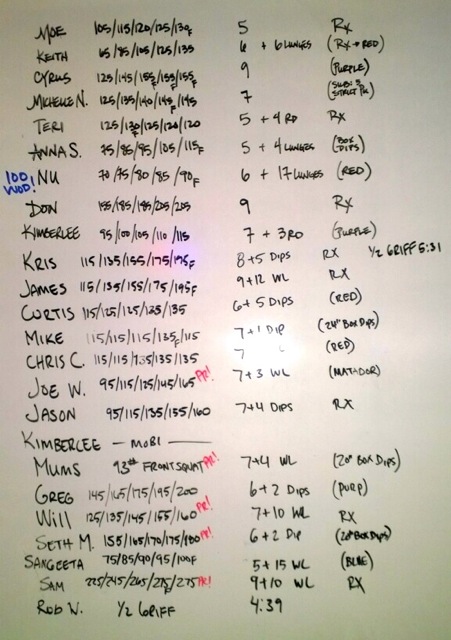 MOE 105/115/120/125/130F 5 Rx
KEITH 65/85/105/125/135 6 + 6 LUNGES (Rx→RED)
CYRUS 125/145/155F/155/155F 9 (PURPLE)
MICHELLE N. 125/135/140/145F/145 7 (SUB: 5 STRICT PU)
TERI 125/130F/125/120/120 5 + 4 RD Rx
ANNA S. 75/85/95/105/115F 5 + 4 LUNGES (BOX DIPS)
100 WOD! NU 70/75/80/85/90F 6 + 17 LUNGES (RED)
DON 155/185/195/205/205 9 Rx
KIMBERLEE 95/100/105/110/115 7 + 3 RD (PURPLE)
KRIS 115/135/155/175/195F 8+5 DIPS RX 1/2 GRIFF 5:31
JAMES 115/135/155/175/195F 9+12 WL RX
CURTIS 115/125/125/135/135 6+5 DIPS (RED)
MIKE 115/115/115/135F/115 7+1 DIP (24" BOX DIPS)
CHRIS C. 115/115/135/135/135 7 (RED)
JOE W. 95/115/125/145/165 PR! 7+3 WL (MATADOR)
JASON 95/115/135/155/160 7+4 DIPS RX
KIMBERLEE — MOBI —
MUMS 93# FRONT SQUAT PR! 7+4 WL (20" BOX DIPS)
GREG 145/165/175/195/200 6+2 DIPS (PURP)
WILL 125/135/145/155/160 PR! 7+10 WL RX
SETH M. 155/165/170/175/180 PR! 6+2 DIP (20" BOX DIPS)
SANGEETA 75/85/90/95/100F 5+15 WL (BLUE)
SAM 225/245/265/275F/275 PR! 9+10 WL RX
ROB W. 1/2 GRIFF 4:39